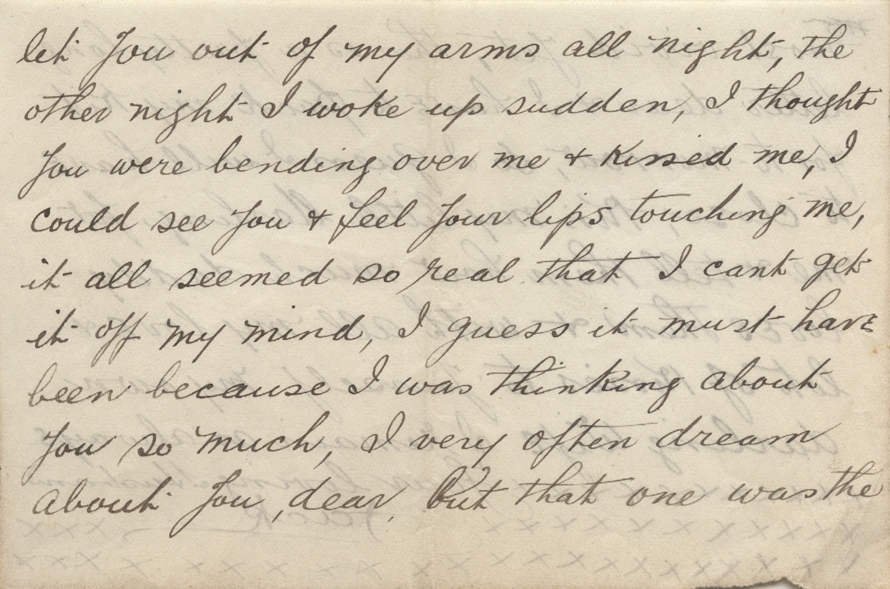 let You out of my arms all night, the
other night I woke up sudden, I thought
You were bending over me & Kissed me, I
could see You & feel Your lips touching me,
it all seemed so real that I cant get
it off my mind, I guess it must have
been because I was thinking about
You so much, I very often dream
about You, dear, But that one was the